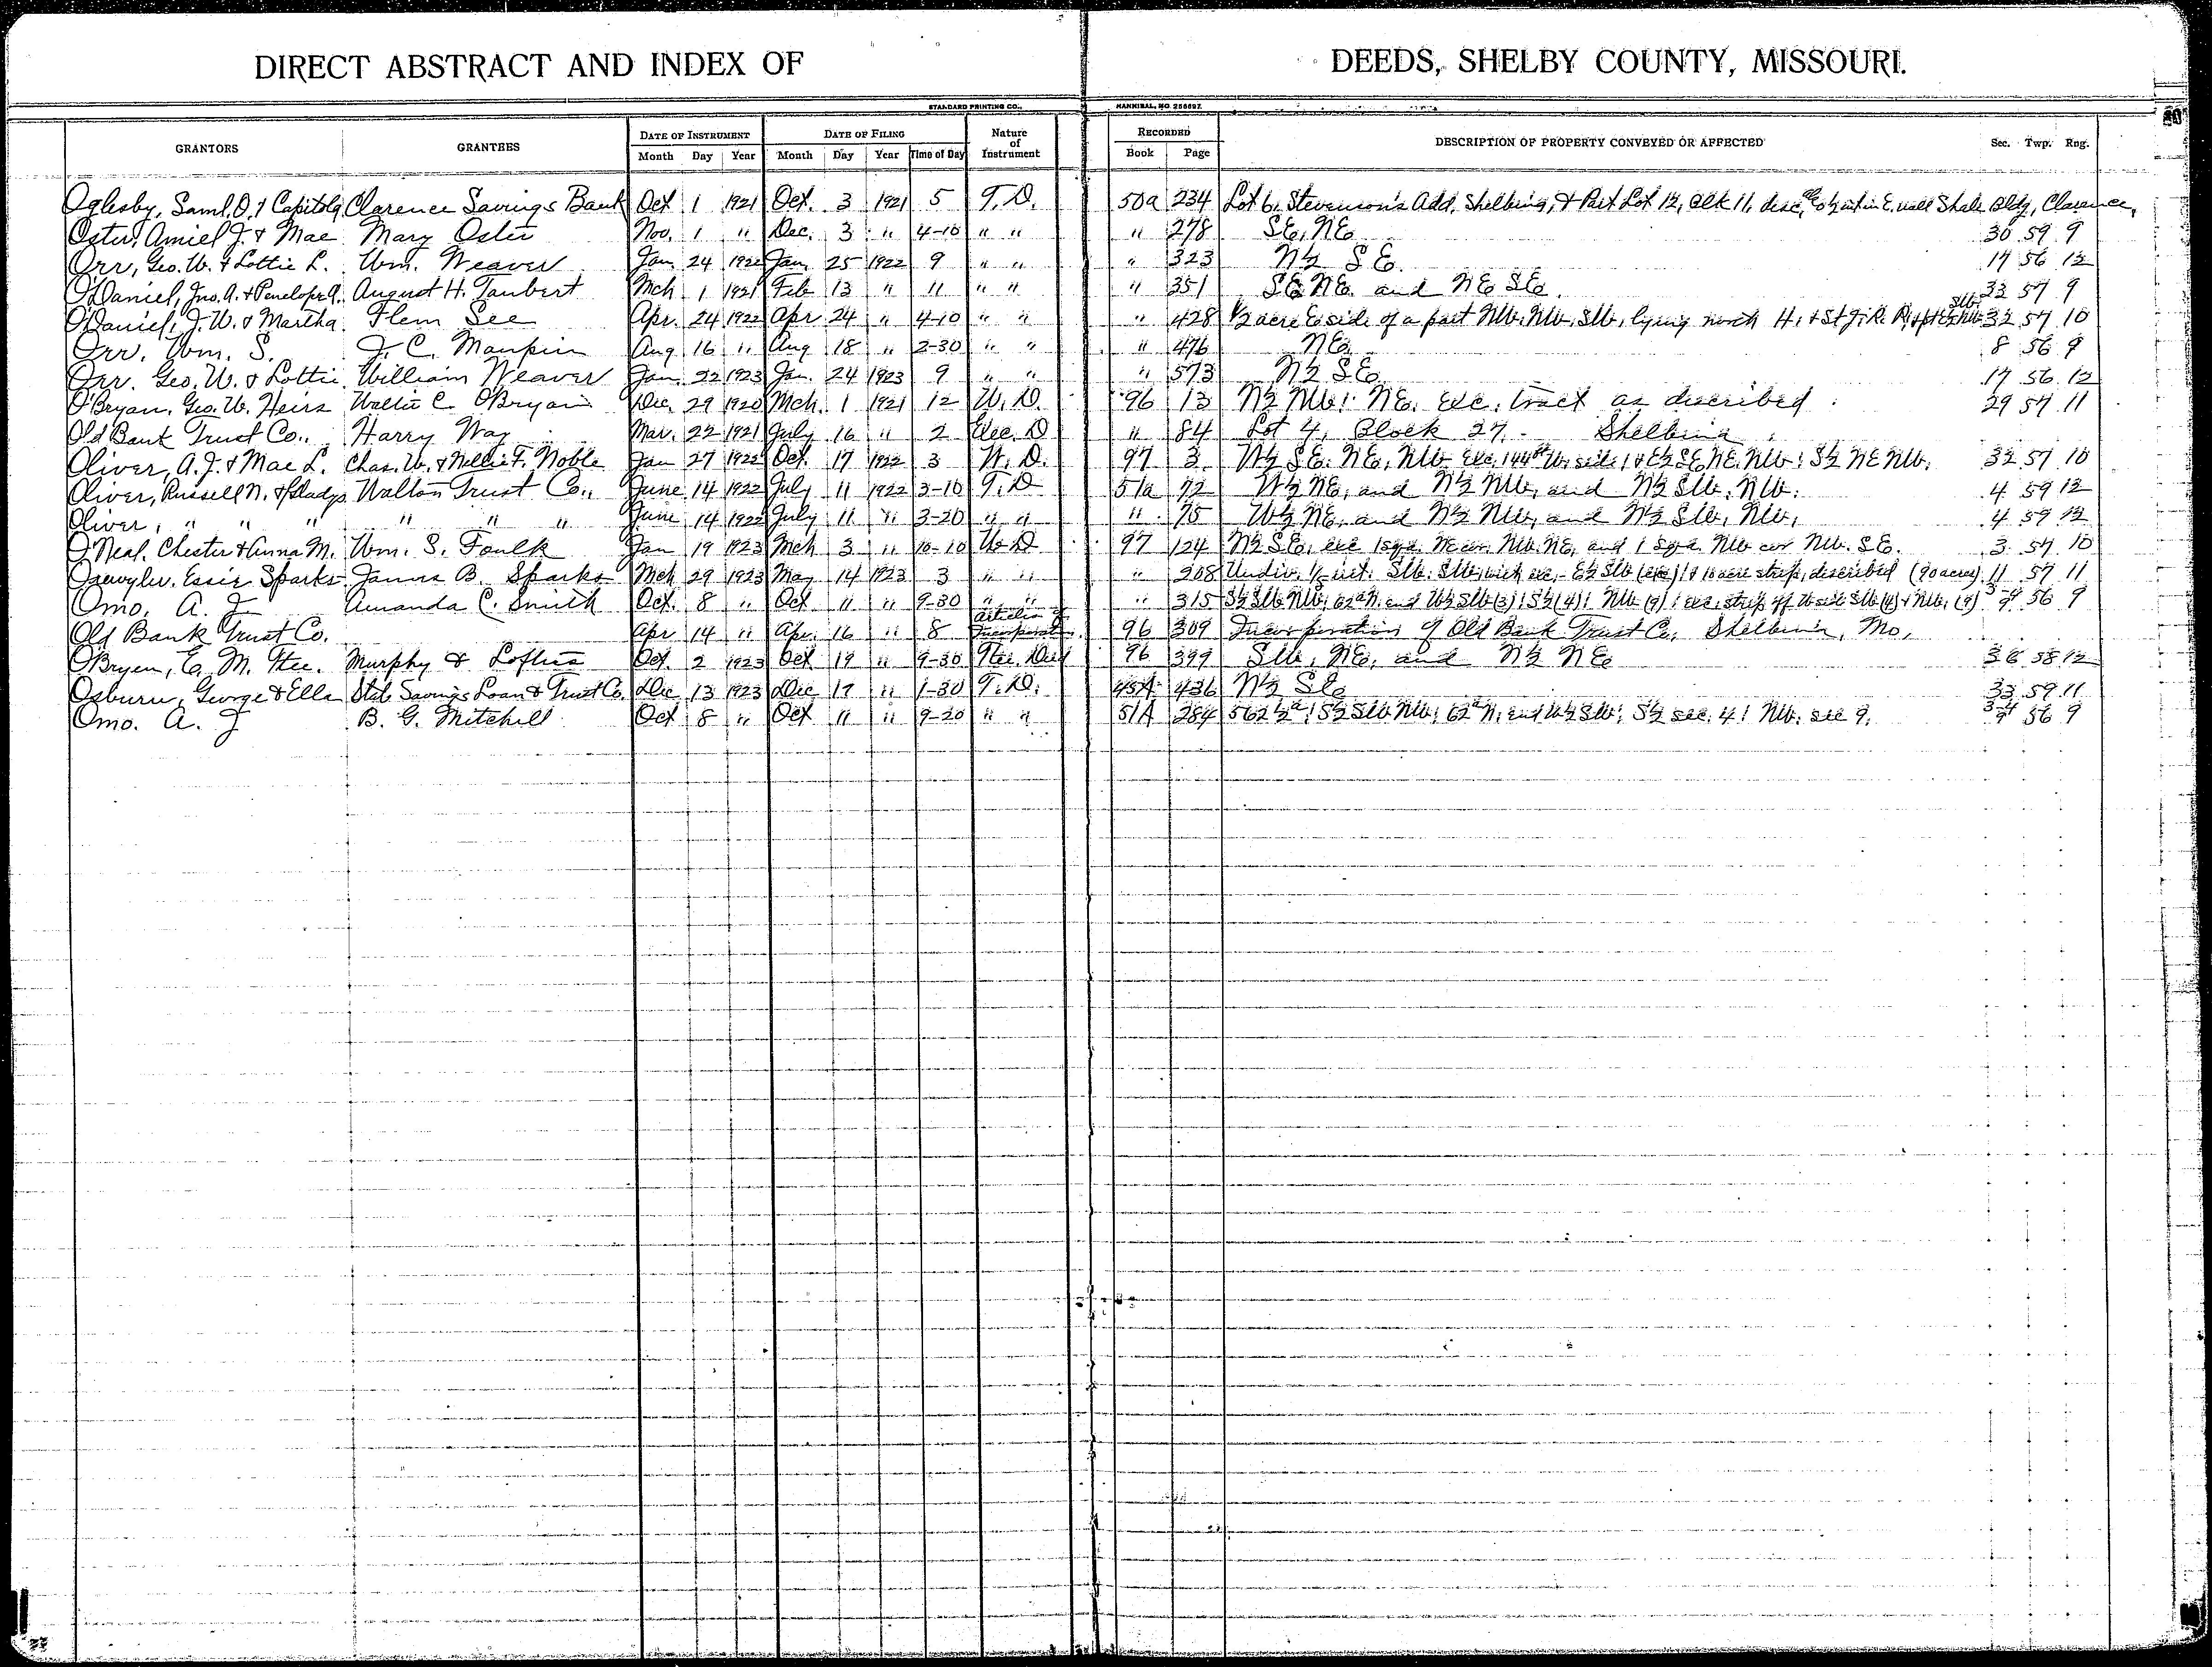 DIRECT ABSTRACT AND INDEX OF DEEDS, SHELBY COUNTY, MISSOURI.
STANDARD PRINTING CO., HANNIBAL, MO. 256697
GRANTORS GRANTEES DATE OF INSTRUMENT DATE OF FILING Nature of Instrument RECORDED DESCRIPTION OF PROPERTY CONVEYED OR AFFECTED Sec. Twp. Rng.
Month Day Year Month Day Year Time of Day Book Page
Oglesby, Saml. O. & Capitola Clarence Savings Bank Oct 1 1921 Oct. 3 1921 5 T. D. 50a 234 Lot 6, Stevenson's Add, Shelbina, & Part Lot 12, Blk 11, desc, int in E. wall Shale Bldg, Clarence,
Oster, Amiel J. & Mae Mary Oster Nov. 1 " Dec. 3 " 4-10 " " " 278 SE, NE 30 59 9
Orr, Geo. W. & Lottie L. Wm. Weaver Jan 24 1922 Jan. 25 1922 9 " " " 323 N½ S E. 17 56 12
O'Daniel, Jno. A. & Penelope A. August H. Taubert Mch 1 1921 Feb 13 " 11 " " " 351 SE NE. and NE SE. 33 57 9
O'Daniel, J. W. & Martha Flem See Apr. 24 1922 Apr 24 " 4-10 " " " 428 ½ acre E side of a part NW. NW. SW, lying north H. & St J. R. R. 32 57 10
Orr, Wm. S. J. C. Maupin Aug 16 " Aug 18 " 2-30 " " " 476 NE 8 56 9
Orr. Geo. W. & Lottie William Weaver Jan. 22 1923 Jan. 24 1923 9 " " " 573 N½ SE 17 56 12
O'Bryan, Geo. W. Heirs Walter C. O'Bryan Dec. 29 1920 Mch. 1 1921 12 W. D. 96 13 N½ NW: NE. exc. tract as described. 29 57 11
Old Bank Trust Co., Harry Way Mar. 22 1921 July 16 " 2 Elec. D " 84 Lot 4, Block 27. Shelbina
Oliver, A. J. & Mae L. Chas. W. & Nellie F. Noble Jan 27 1922 Oct. 17 1922 3 W. D. 97 3 W½ SE. NE, NW exc. 144 ft W. side; & E½ SE, NE, NW; S½ NE NW. 32 57 10
Oliver, Russell N. & Gladys Walton Trust Co., June 14 1922 July 11 1922 3-10 T. D 51a 72 W½ NE, and N½ NW, and N½ SW. NW. 4 59 12
Oliver, " " " " " " June 14 1922 July 11 " 3-20 " " " 75 W½ NE, and N½ NW, and N½ SW, NW, 4 59 12
O'Neal, Chester & Anna M. Wm. S. Foulk Jan 19 1923 Mch 3 " 10-10 W. D 97 124 N½ SE, exc 1 sq a. NE cor. NW. NE, and 1 sq a. NW cor NW. SE. 3 57 10
Essie Sparks James B. Sparks Mch 29 1923 May 14 1923 3 " " " 208 Undiv. int. SW. SW, with exc, E½ SW & 10 acre strip, described (90 acres) 11 57 11
Omo, A. J Amanda C. Smith Oct. 8 " Oct 11 " 9-30 " " " 315 S½ SW NW; 62 a N. end W½ SW (3); S½ (4); NW (9); exc. strip off W side SW (4) & NW, (9) 3-4 9 56 9
Old Bank Trust Co. Apr 14 " Apr. 16 " 8 Articles of Incorporation 96 309 Incorporation of Old Bank Trust Co, Shelbina, Mo,
O'Bryen, E. M. Tree. Murphy & Loftus Oct 2 1923 Oct 19 " 9-30 Tree. Deed 96 399 SW, NE, and N½ NE 36 58 12
Osburn, George & Ella State Savings Loan & Trust Co. Dec 13 1923 Dec 17 " 1-30 T. D. 45A 436 N½ SE 33 59 11
Omo. A. J B. G. Mitchell Oct 8 " Oct 11 " 9-20 " " 51A 284 562½ a; S½ SW NW; 62 a N. end W½ SW; S½ sec. 4; NW. sec 9. 3-4 9 56 9